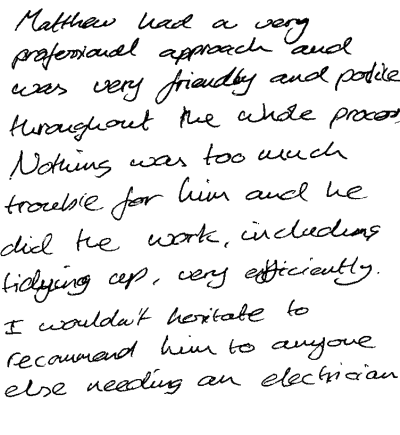 Matthew had a very
professional approach and
was very friendly and polite
throughout the whole process
Nothing was too much
trouble for him and he
did the work, including
tidying up, very efficiently.
I wouldn't hesitate to
recommend him to anyone
else needing an electrician